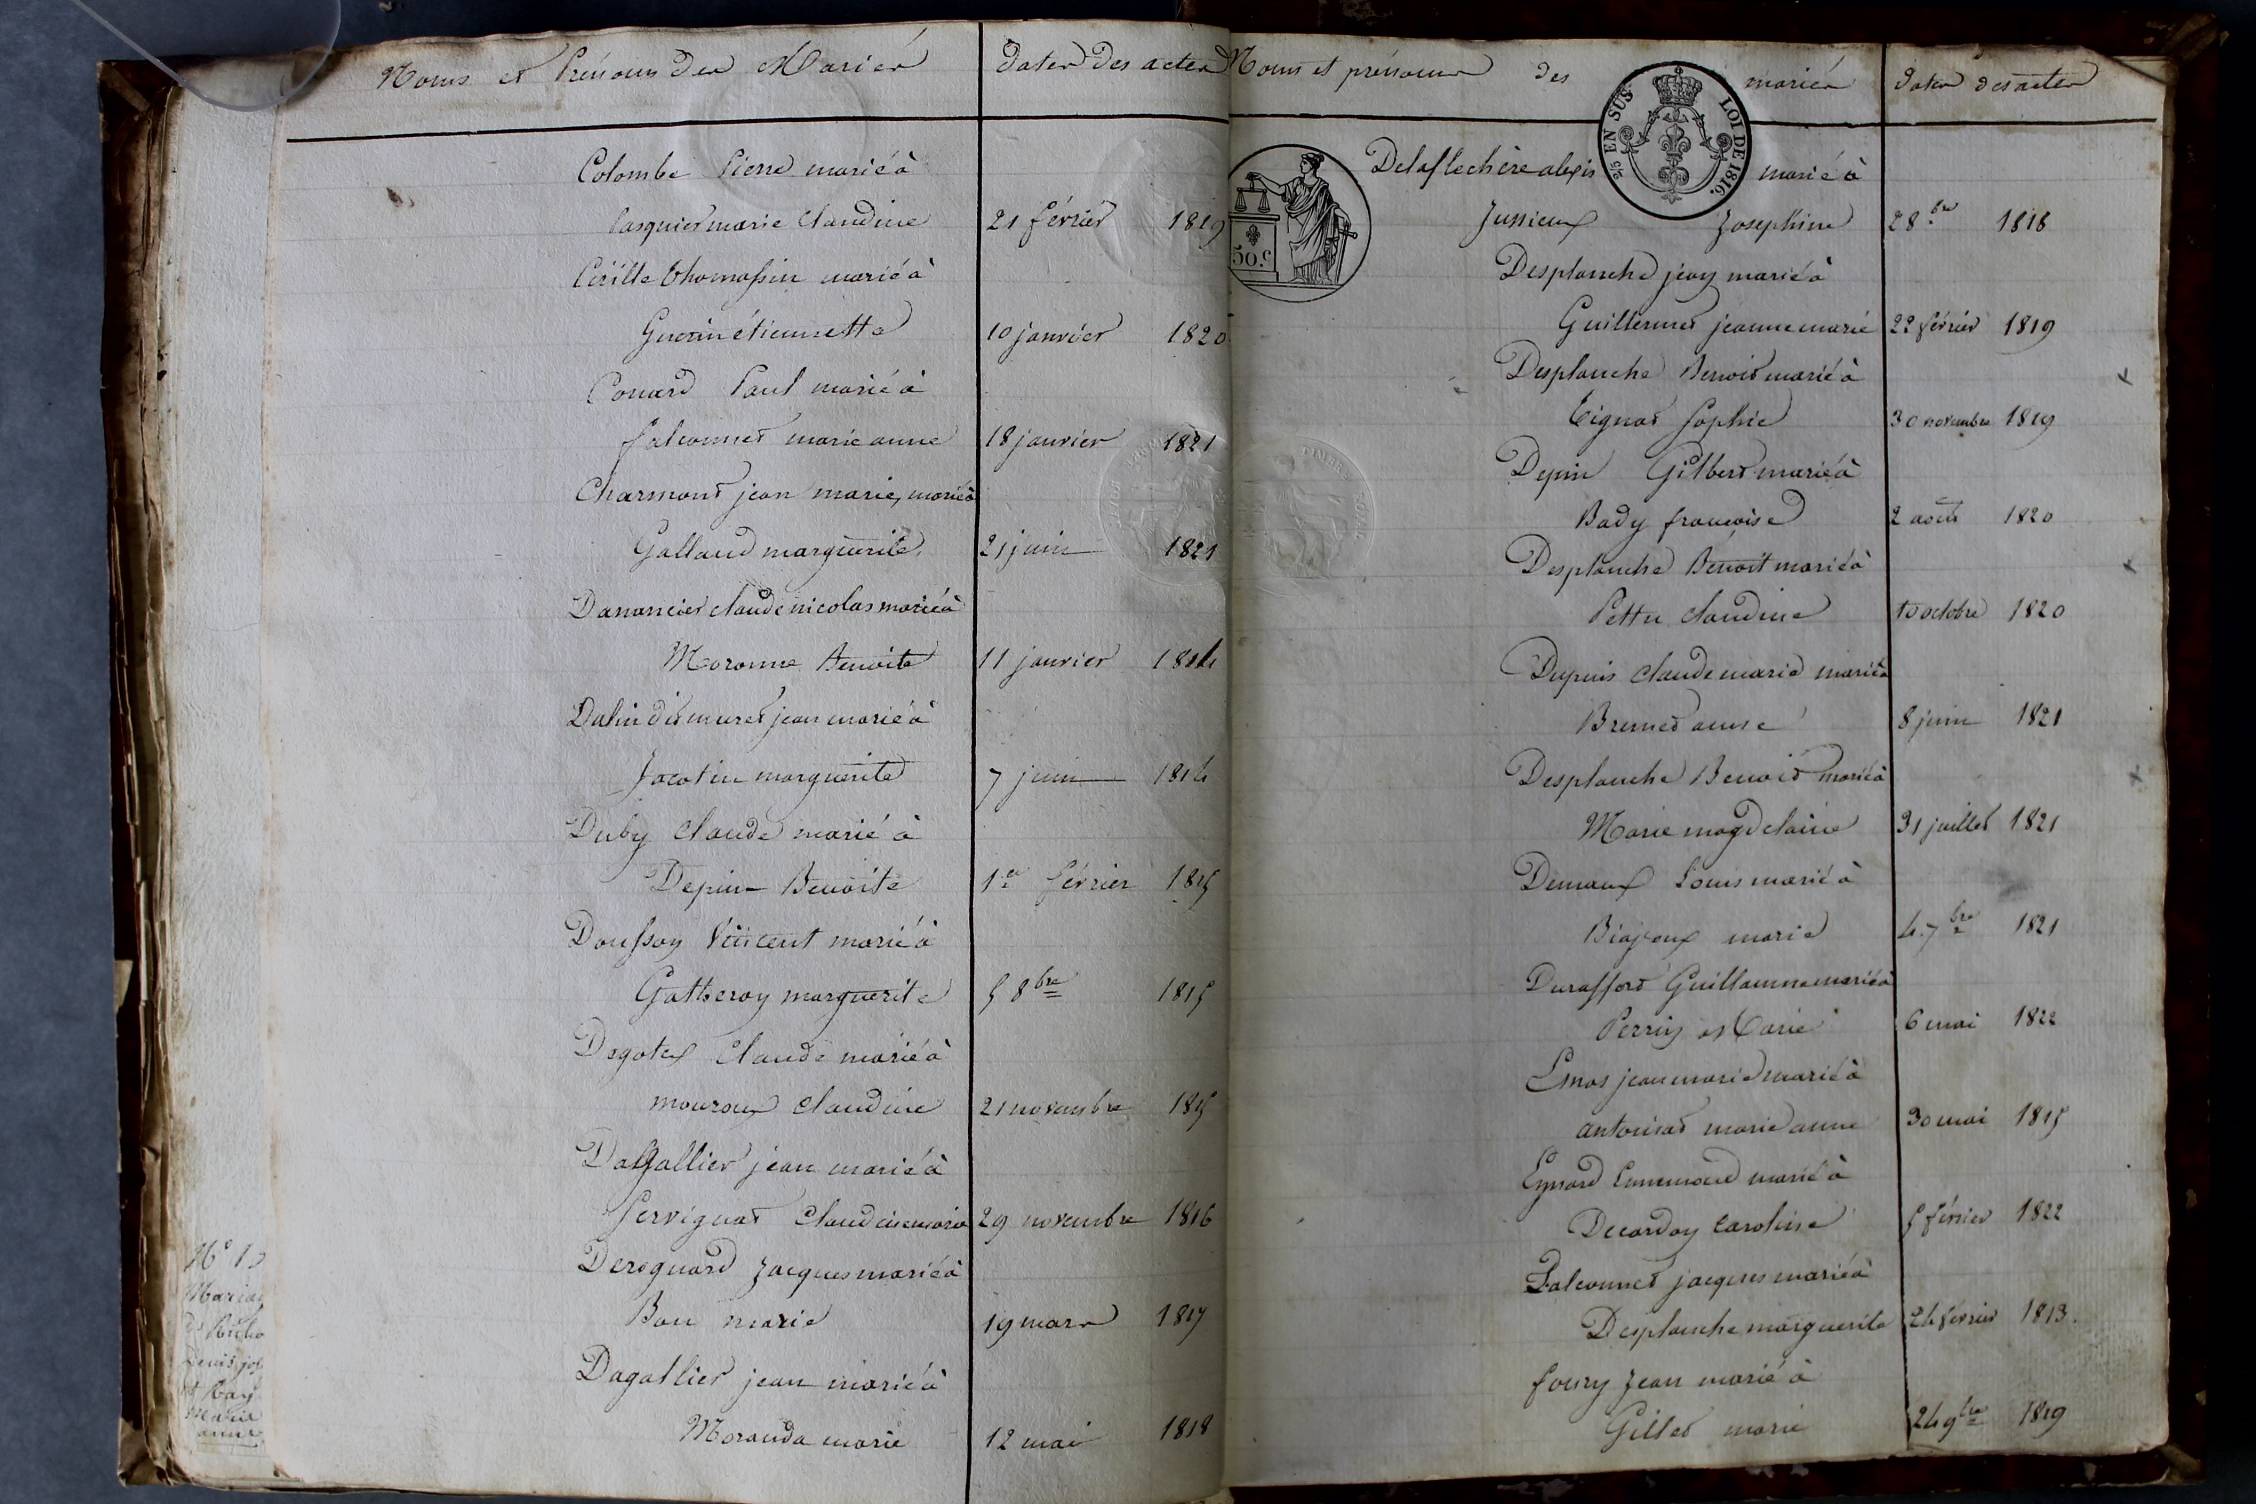 Noms et Prénoms des Mariés
Dates des actes
Colombe Pierre marié à
Pasquier marie Claudine 21 février 1819
Cirille Thomassin marié à
Guerin étiennette 10 janvier 1820
Conard Paul marié à
falconnet marie anne 18 janvier 1821
Charmont jean marie, marié à
Galland marguerite 21 juin 1821
Danancier claude nicolas marié à
Moronne Benoite 11 janvier 1814
Dalin dit muret jean marié à
Jacotin marguerite 7 juin 1814
Duby Claude marié à
Depin Benoite 1er février 1815
Doussoy Vincent marié à
Gatheroy marguerite 5 8bre 1815
Degotex Claude marié à
mouroux Claudine 21 novembre 1815
Dagallier jean marié à
Servignat Claudine marie 29 novembre 1816
Deroguard Jacques marié à
Bon marie 19 mars 1817
Dagallier jean marié à
Moranda marie 12 mai 1818
Noms et prénoms des mariés
Dates des actes
2/5 EN SUS. LOI DE 1816.
50.c
Delaflechère alexis marié à
Jussieux Josephine 28 bre 1818
Desplanche jean marié à
Guillermet jeanne marie 22 février 1819
Desplanche Benoit marié à
Tignat Sophie 30 novembre 1819
Depin Gilbert marié à
Bady françoise 2 août 1820
Desplanche Benoit marié à
Pettu Claudine 10 octobre 1820
Dupuis Claude marie marié à
Bremet anne 8 juin 1821
Desplanche Benoit marié à
Marie magdelaine 31 juillet 1821
Demaux Louis marié à
Biajoux marie 4. 7bre 1821
Duraffort Guillaume marié à
Perrin Marie 6 mai 1822
Emos jean marie marié à
antoinat marie anne 30 mai 1815
Eynard Ennemond marié à
Decardoy Caroline 5 février 1822
Falconnet jacques marié à
Desplanche marguerite 24 février 1813.
foury Jean marié à
Gillet marie 24 9bre 1819